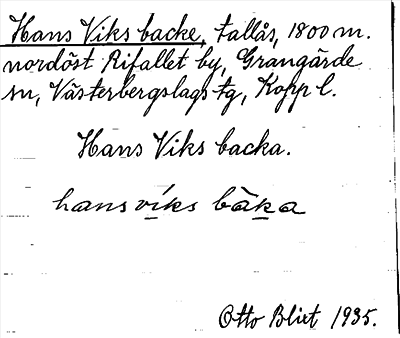 Hans Viks backe, tallås, 1800 m.
nordöst Rifallet by, Grangärde
sn, Västerbergslags tg, Kopp l.
Hans Viks backa.
hansviks bàka
Otto Blixt 1935.